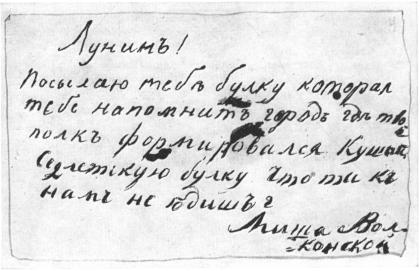 Лунинъ!
Посылаю тебѣ булку которая
тебе напомнитъ городъ гдѣ твой
полкъ формировался Кушай
Седлетскую булку что ты къ
намъ не ѣдишь?
Миша Вол-
=конской